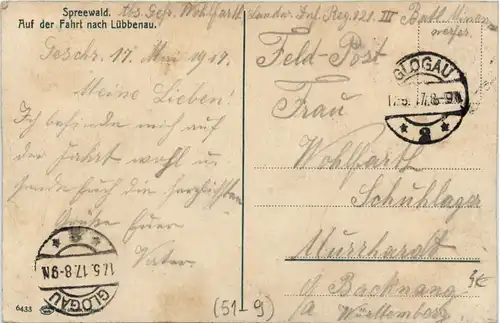 Spreewald.
Auf der Fahrt nach Lübbenau.
Abs. Gefr. Wohlfarth Landw. Inf. Reg. 121. III Batt. Minen
werfer.
Geschr. 17. Mai 1917.
Meine Lieben!
Ich befinde mich auf
der Fahrt wohl u.
sende Euch die herzlichsten
Grüße Euer
Vater.
Feld-Post
Frau
Wohlfarth
Schuhlager
Murrhardt
Backnang
Württemberg
GLOGAU
17.5.17.8-9N
* 2 *
GLOGAU
17.5.17.8-9N
6433
(51-9)